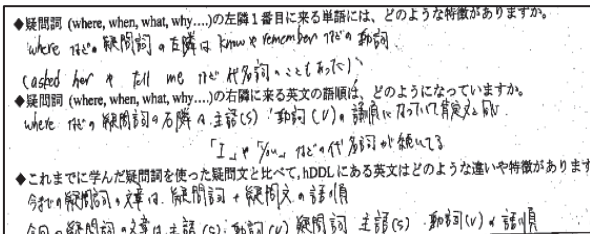 ◆疑問詞 (where, when, what, why....)の左隣1番目に来る単語には、どのような特徴がありますか。
where などの疑問詞の左隣は know や remember などの動詞
(asked her や tell me など代名詞のこともあった)
◆疑問詞 (where, when, what, why....)の右隣に来る英文の語順は、どのようになっていますか。
where などの疑問詞の右隣は、主語(S) 動詞(V)の語順になっていて肯定文と同じ
「I」や「You」などの代名詞が続いてる
◆これまでに学んだ疑問詞を使った疑問文と比べて、hDDLにある英文はどのような違いや特徴があります
今までの疑問詞の文章は、疑問詞+疑問文の語順
今回の疑問詞の文章は主語(S)、動詞(V) 疑問詞 主語(S) 動詞(V)の語順